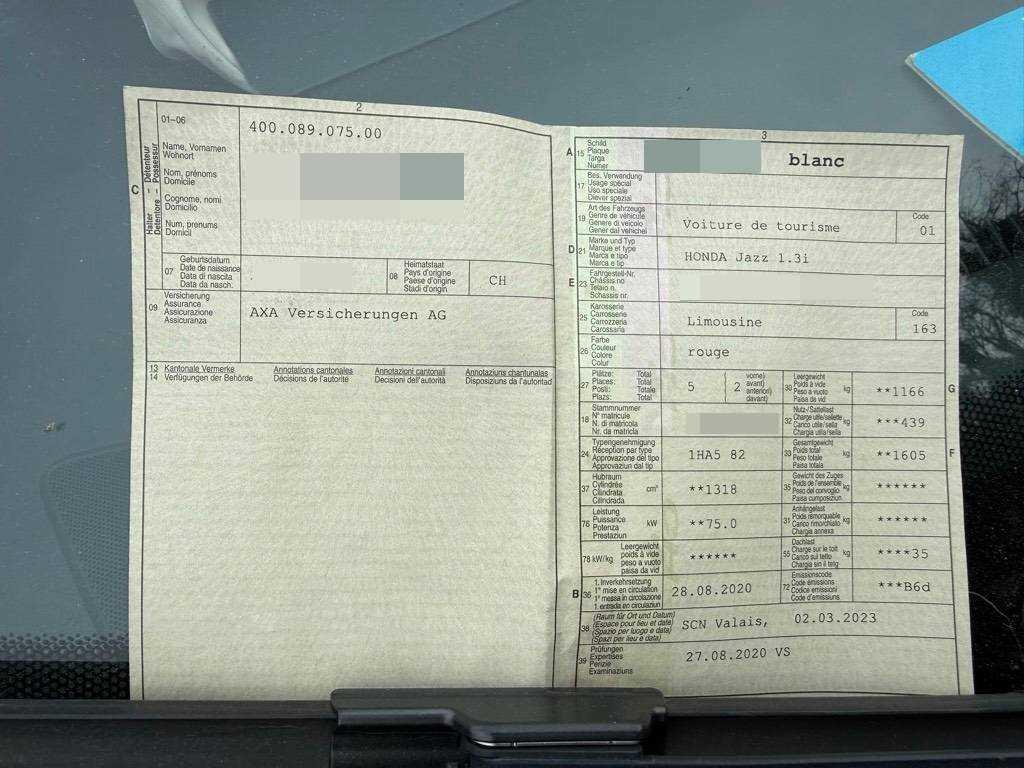 2
01-06
400.089.075.00
C
Halter – Détenteur
Detentore – Possessur
Name, Vornamen
Wohnort
Nom, prénoms
Domicile
Cognome, nomi
Domicilio
Num, prenums
Domicil
07
Geburtsdatum
Date de naissance
Data di nascita
Data da nasch.
08
Heimatstaat
Pays d'origine
Paese d'origine
Stadi d'origin
CH
09
Versicherung
Assurance
Assicurazione
Assicuranza
AXA Versicherungen AG
13 Kantonale Vermerke Annotations cantonales Annotazioni cantonali Annotaziuns chantunalas
14 Verfügungen der Behörde Décisions de l'autorité Decisioni dell'autorità Disposiziuns da l'autoritad
3
A 15
Schild
Plaque
Targa
Numer
blanc
17
Bes. Verwendung
Usage spécial
Uso speciale
Diever spezial
19
Art des Fahrzeugs
Genre de véhicule
Genere di veicolo
Gener dal vehichel
Voiture de tourisme
Code
01
D 21
Marke und Typ
Marque et type
Marca e tipo
Marca e tip
HONDA Jazz 1.3i
E 23
Fahrgestell-Nr.
Châssis no
Telaio n.
Schassis nr.
25
Karosserie
Carrosserie
Carrozzeria
Carossaria
Limousine
Code
163
26
Farbe
Couleur
Colore
Colur
rouge
27
Plätze: Total
Places: Total
Posti: Totale
Plazs: Total
5
2
vorne)
avant)
anteriori)
davant)
30
Leergewicht
Poids à vide
Peso a vuoto
Paisa da vid
kg
**1166
G
18
Stammnummer
N° matricule
N. di matricola
Nr. da matricla
32
Nutz-/Sattellast
Charge utile/sellette
Carico utile/sella
Chargia utila/sella
kg
***439
24
Typengenehmigung
Réception par type
Approvazione del tipo
Approvaziun dal tip
1HA5 82
33
Gesamtgewicht
Poids total
Peso totale
Paisa totala
kg
**1605
F
37
Hubraum
Cylindrée
Cilindrata
Cilindrada
cm³
**1318
35
Gewicht des Zuges
Poids de l'ensemble
Peso del convoglio
Paisa cumposiziun
kg
******
76
Leistung
Puissance
Potenza
Prestaziun
kW
**75.0
31
Anhängelast
Poids remorquable
Carico rimorchiabile
Chargia annexa
kg
******
78 kW/kg
Leergewicht
poids à vide
peso a vuoto
paisa da vid
******
55
Dachlast
Charge sur le toit
Carico sul tetto
Chargia sin il tetg
kg
****35
B 36
1. Inverkehrsetzung
1re mise en circulation
1a messa in circolazione
1. entrada en circulaziun
28.08.2020
72
Emissionscode
Code émissions
Codice emissioni
Code d'emissiuns
***B6d
38
(Raum für Ort und Datum)
(Espace pour lieu et date)
(Spazio per luogo e data)
(Spazi per lieu e data)
SCN Valais, 02.03.2023
39
Prüfungen
Expertises
Perizie
Examinaziuns
27.08.2020 VS